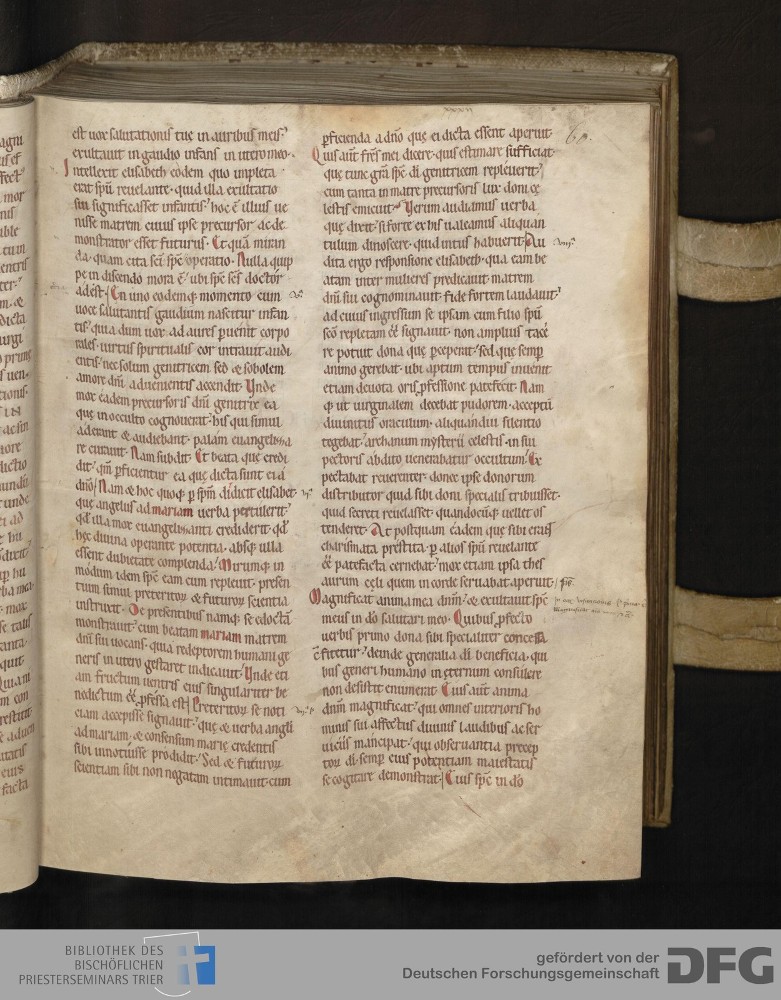 est uox salutationis tuę in auribus meis ?
exultauit in gaudio infans in utero meo .
Intellexit elisabeth eodem quo impleta
erat spū reuelante . quid illa exultatio
sui significasset infantis ? hoc ē illius ue
nisse matrem cuius ipse precursor ac de
monstrator esset futurus . Et quā miran
da . quam cita sc̄i spc̄ operatio . Nulla quip
pe in discendo mora ē ? ubi spc̄ sc̄s doctor
adest . En uno eodemq; momento cum
uoce salutantis gaudium nascitur infan
tis ? quia dum uox ad aures puenit corpo
rales . uirtus spiritualis cor intrauit audi
entis ? nec solum genitricem sed & sobolem
amore dn̄i aduenientis accendit . Vnde
mox eadem precursoris dn̄i genitrix ea
quę in occulto cognouerat . his qui simul
aderant & audiebant . palam euangeliza
re curauit . Nam subdit . Et beata quę credi
dit . qm̄ pficientur ea quę dicta sunt ei a
dn̄o / Nam & hoc quoq; p spm̄ didicit elisabet .
quę angelus ad mariam uerba pertulerit ?
qd̄ illa mox euangelizanti crediderit . qd̄
hęc diuina operante potentia . absq; ulla
essent dubietate complenda / Mirumq; in
modum . idem spc̄ eam cum repleuit . presen
tium simul preteritoꝝ & futuroꝝ scientia
instruxit . De presentibus namq; se edoctā
monstrauit ? cum beatam mariam matrem
dn̄i sui uocans . quia redeptorem humani ge
neris in utero gestaret indicauit ? Vnde eti
am fructum uentris eius singulariter be
nedictum ēē pfessa est / Preteritoꝝ se noti
ciam accepisse signauit ? quę & uerba angli
ad mariam . & consensum marię credentis
sibi innotuisse prodidit . Sed & futuroꝝ
scientiam sibi non negatam intimauit . cum
pficienda a dn̄o quę ei dicta essent aperuit .
Quis aut̄ frēs mei dicere . quis estimare sufficiat .
quę tunc grā spc̄ dī genitricem repleuerit ?
cum tanta in matre precursoris lux doni cę
lestis emicuit . Verum audiamus uerba
quę dixit . si forte ex his ualeamus aliquan
tulum dinoscere . quid intus habuerit . Au
dita ergo responsione elisabeth . qua eam be
atam inter mulieres predicauit . matrem
dn̄i sui cognominauit . fide fortem laudauit ?
ad cuius ingressum se ipsam cum filio spū
sc̄o repletam ēē signauit . non amplius tacē
re potuit dona quę pceperit ? sed quę semp
animo gerebat . ubi aptum tempus inuenit
etiam deuota oris pfessione patefecit . Nam
q; ut uirginalem decebat pudorem . acceptū
diuinitus oraculum . aliquandiu silentio
tegebat ? archanum mysterii celestis . in sui
pectoris abdito uenerabatur occultum / Ex
pectabat reuerenter . donec ipse donorum
distributor quid sibi doni specialis tribuisset .
quid secreti reuelasset . quandocūq; uellet os
tenderet . At postquam eadem quę sibi erant
charismata prestita . p alios spū reuelante
ēē patefacta cernebat ? mox etiam ipsa thes
aurum cęli quem in corde seruabat aperuit /
Magnificat anima mea dnm̄ ? & exultauit spc̄
meus in dō salutari meo . Quibus pfecto
uerbis primo dona sibi specialiter concessa
c̄fitetur ? deinde generalia dī beneficia . qui
bus generi humano in ęternum consulere
non desistit enumerat . Cuius aut̄ anima
dnm̄ magnificat ? qui omnes interioris ho
minis sui affectus diuinis laudibus ac ser
uiciis mancipat ? qui obseruantia precep
toꝝ dī . semp eius potentiam maiestatis
se cogitare demonstrat / Cuius spc̄ in dō
BIBLIOTHEK DES
BISCHÖFLICHEN
PRIESTERSEMINARS TRIER
gefördert von der
Deutschen Forschungsgemeinschaft
DFG